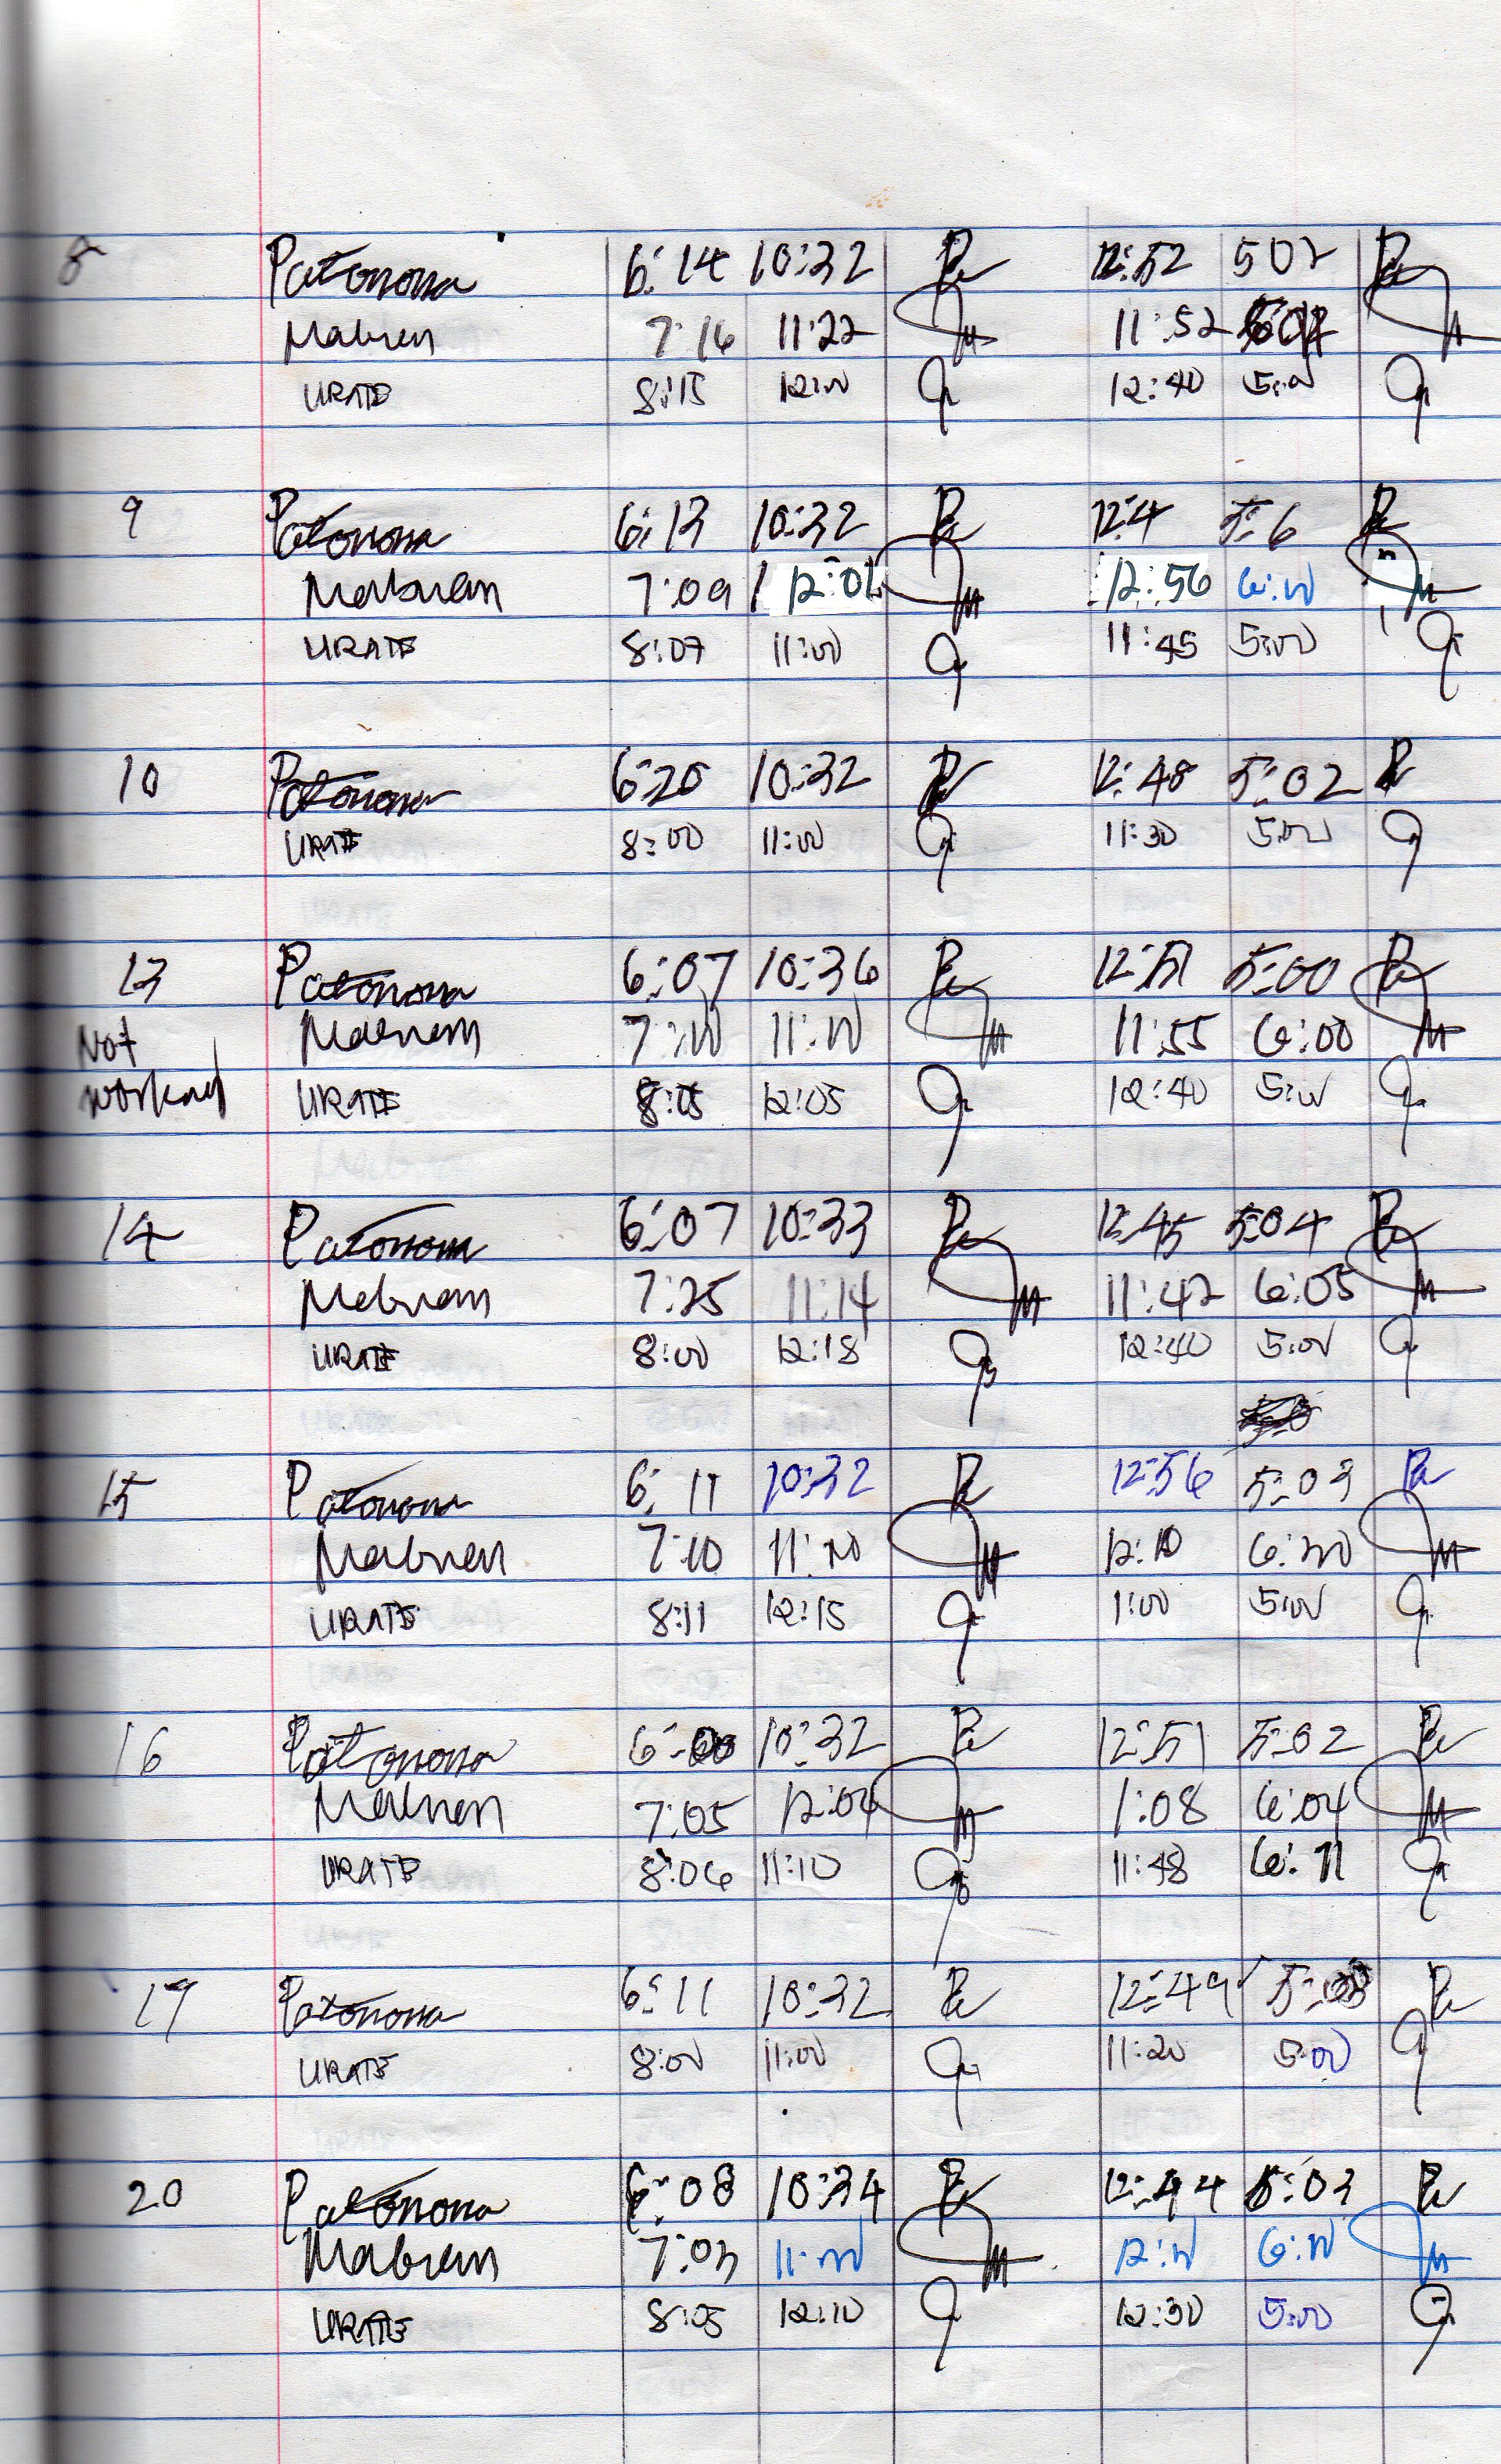 8 Patonona 6:14 10:32 12:52 502
Mabuen 7:16 11:22 11:52
URATE 8:15 12:00 12:40 5:00
9 Patonona 6:13 10:32 12:4 5:6
Mabuen 7:09 12:02 12:56 6:00
URATE 8:07 11:00 11:45 5:00
10 Patonona 6:20 10:32 12:48 5:02
URATE 8:00 11:00 11:30 5:00
13 Patonona 6:07 10:36 12:51 5:00
Not Mabuen 7:10 11:10 11:55 6:00
URATE 8:05 12:05 12:40 5:00
14 Patonona 6:07 10:33 12:45 5:04
Mabuen 7:25 11:14 11:42 6:05
URATE 8:00 12:18 12:40 5:00
15 Patonona 6:11 10:32 12:56 5:03
Mabuen 7:10 11:20 12:10 6:20
URATE 8:11 12:15 1:00 5:00
16 Patonona 10:32 12:51 5:02
Mabuen 7:05 12:04 1:08 6:04
URATE 8:06 11:10 11:48 6:11
17 Patonona 6:11 10:32 12:49
URATE 8:00 11:00 11:20 5:00
20 Patonona 6:08 10:34 12:44 5:03
Mabuen 7:03 11:00 12:10 6:10
URATE 8:05 12:10 12:30 5:00